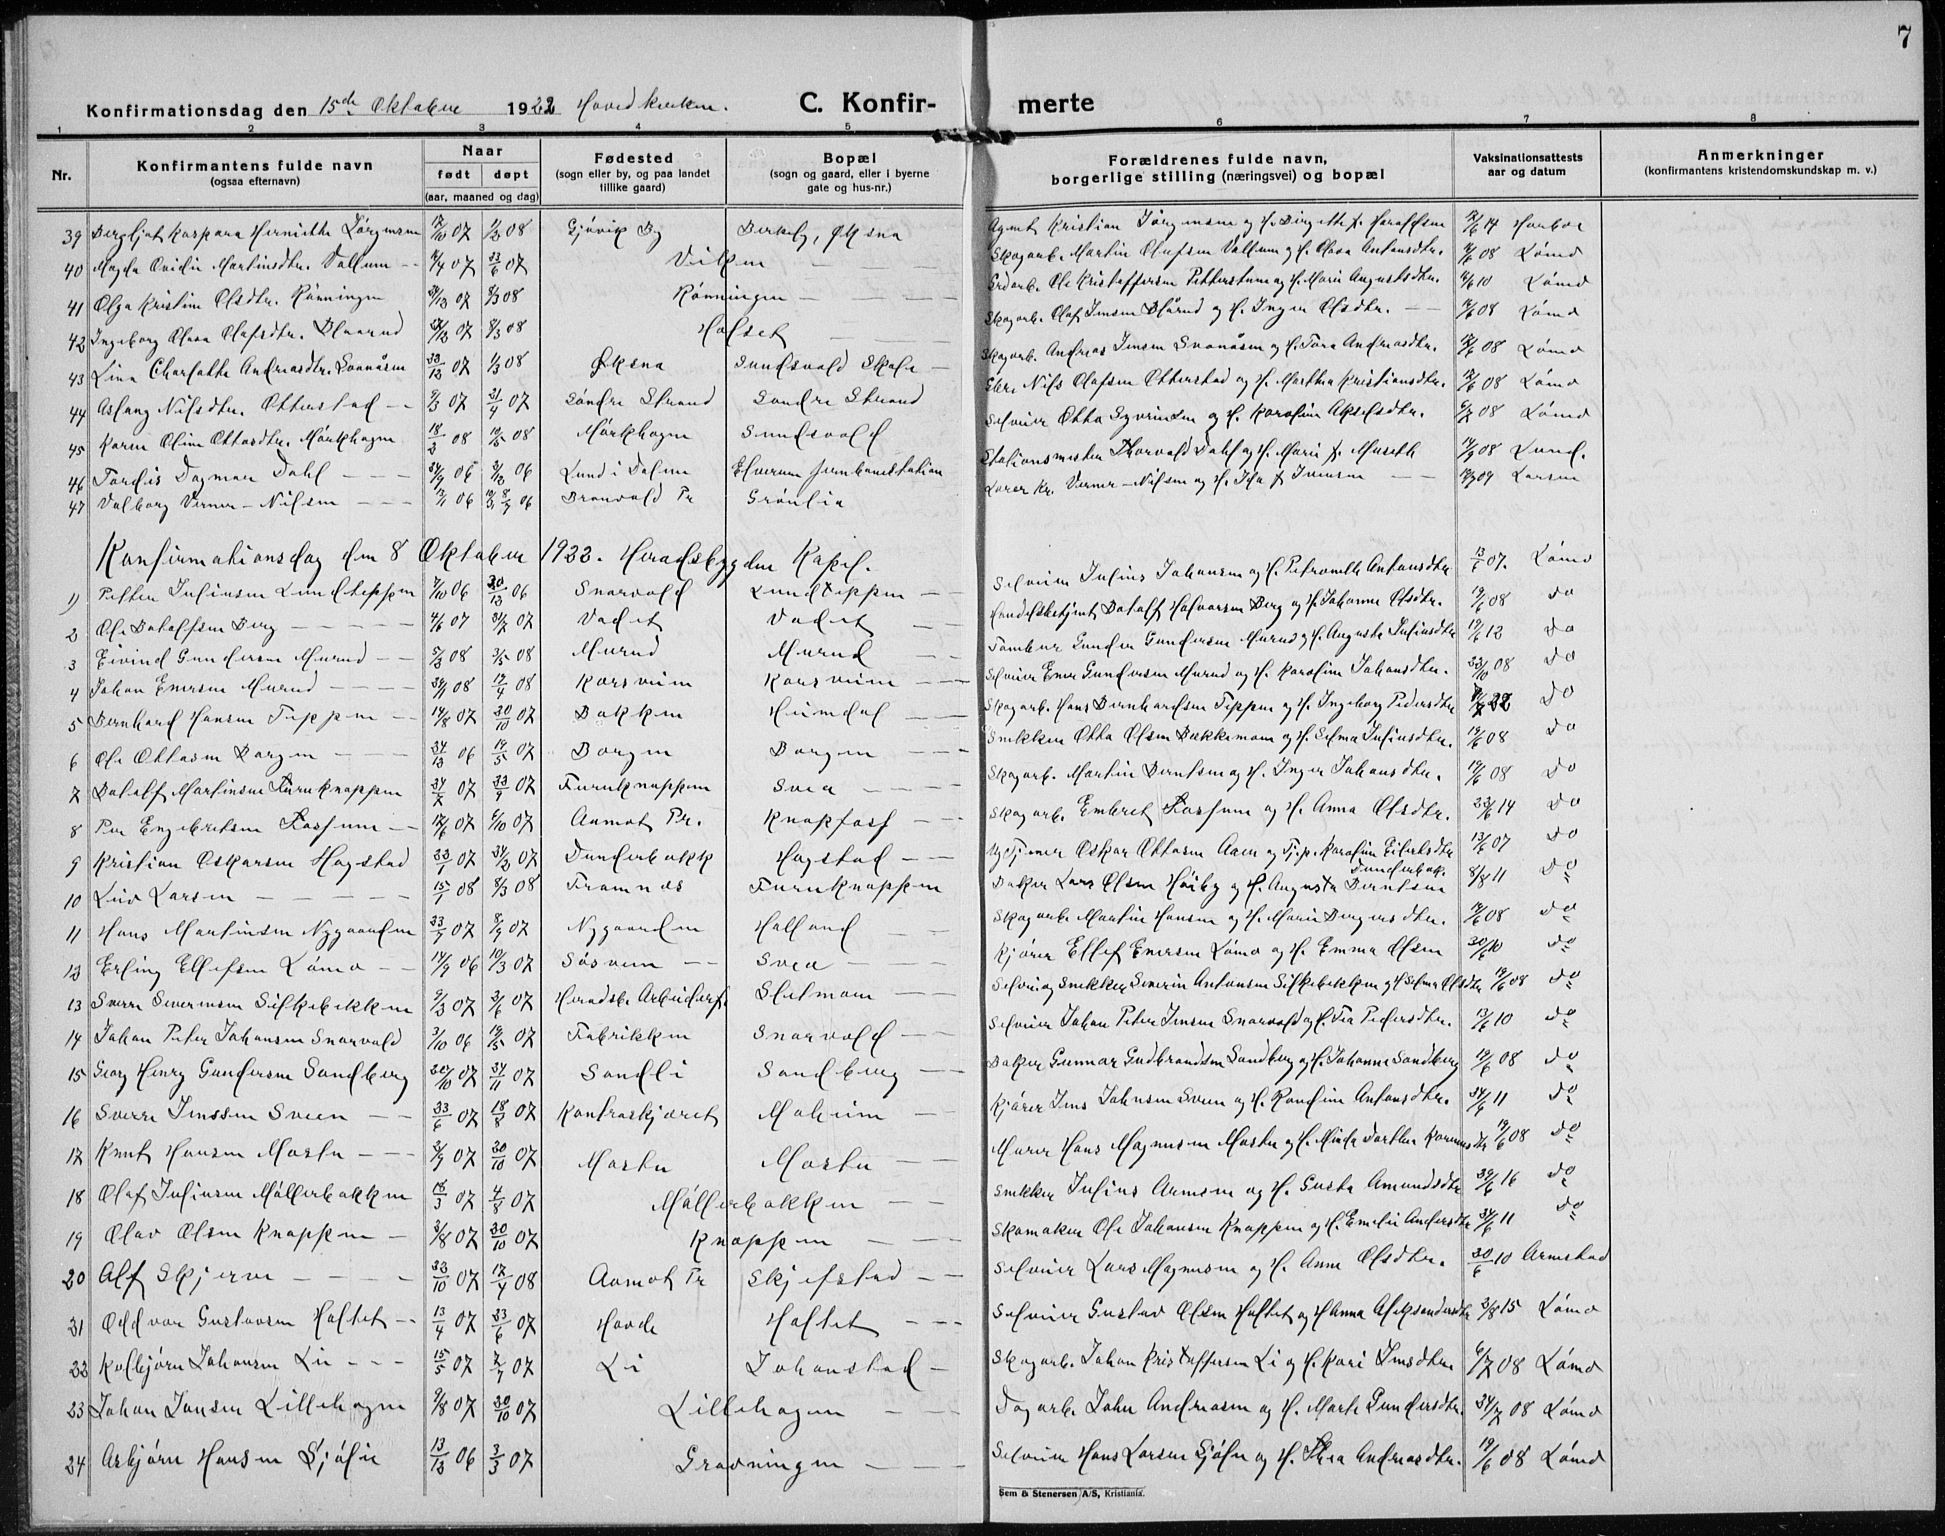 7
Konfirmationsdag den 15de Oktober 1922 Hovedkirken. C. Konfir- merte
1 2 3 4 5 6 7 8
Nr. Konfirmantens fulde navn (ogsaa efternavn) Naar født døpt (aar, maaned og dag) Fødested (sogn eller by, og paa landet tillike gaard) Bopæl (sogn og gaard, eller i byerne gate og hus-nr.) Forældrenes fulde navn, borgerlige stilling (næringsvei) og bopæl Vaksinationsattests aar og datum Anmerkninger (konfirmantens kristendomskundskap m. v.)
39 Bergljot Kaspara Henriette Jörgensen 07 1/3 08 Gjøvik By Birkeby, Øksna Agent Kristian Jörgensen og H. Birgitte f. Haraldsen 14
40 Magda Ovidie Martinsdtr. Vollum -- 07 23/6 07 Viken Skogarb. Martin Olafsen Vollum og H. Olava Antonsdtr. 12/6 08 Lømo
41 Olga Kristine Olsdtr. Rønningen 07 8/3 08 Rønningen Ole Kristoffersen Pettersturn og H. Marie Augustsdtr. 10 Lømo
42 Ingeborg Olava Olafsdtr. Blaarud 07 8/3 08 Holset Skogarb. Olaf Jensen Blårud og H. Ingen Olsdtr. -- 12/6 08 Lømo
43 Lina Charlotte Andreasdtr. Svenåsen 22/12 07 1/3 08 Øksna Sundsvold Skole Skogarb. Andreas Jensen Svenåsen og H. Tora Andreasdtr. 12/6 08 Lømo
44 Aslaug Nilsdtr. Otterstad -- 07 21/4 07 Søndre Strand Søndre Strand Nils Olafsen Otterstad og H. Martha Kristiansdtr. 12/6 08 Lømo
45 Karen Oline Ottosdtr. Mørkhagen 18/2 08 10/5 08 Mørkhagen Sundsvold Selveier Otto Syvertsen og H. Karoline Akselsdtr. 6/7 08 Lømo
46 Tordis Dagmar Dahl --- 24/9 06 06 Lund i Dalen Elverum Jernbanestation Stationsmester Thorvald Dahl og H. Marie f. Museth 08 Lund.
47 Valborg Verner-Nilsen --- 06 06 Brandvold Pr Grønlia Lærer Kr. Verner-Nilsen og H. Ida f. Jensen -- 09 Larsen
Konfirmationsdag den 8 Oktober 1922. Heradsbygden Kapel.
1) Petter Juliussen Lundteppen 7/10 06 30/12 06 Snarvold Lundteppen -- Selveier Julius Johansen og H. Petronelle Antonsdtr 13/6 07. Lømo
2 Ole Botolfsen Berg ----- 4/6 07 07 Vadet Vadet Handelsbetjent Botolf Halvorsen Berg og H. Johanne Olsdtr. 19/6 08 do
3 Eivind Gundersen Murud -- 08 3/5 08 Murud Murud -- Tømmer Gunder Gundersen Murud og H. Augusta Juliusdtr 19/6 12 do
4 Johan Enersen Murud ---- 08 12/4 08 Korsveien Korsveien -- Selveier Ener Gundersen Murud og H. Karoline Johansdtr. 22/10 08 do
5 Bernhard Hansen Teppen -- 14/8 07 20/10 07 Bakken Heimdal -- Skogarb. Hans Bernhardsen Teppen og H. Ingeborg Pedersdtr 22 do
6 Ole Ottosen Borgen -- 24/12 06 19/5 07 Borgen Borgen --- Snekker Otto Olsen Bekkemoen og H. Selma Juliusdtr. 19/6 08 do
7 Botolf Martinsen Furuknappen 24/7 07 22/9 07 Furuknappen Svea ---- Skogarb. Martin Berntsen og H. Inger Johansdtr. 19/6 08 do
8 Per Engebretsen Fossum -- 12/6 07 6/10 07 Aamot Pr. Knapfast Skogarb. Embret Fossum og H. Anna Olsdtr. 23/6 14 do
9 Kristian Oskarsen Hagstad 22/1 07 07 Dunderbakk Hagstad -- Oskar Ottosen Aaen og Karoline Eilertsdtr Dunderbak. 13/6 07 do
10 Leiv Larsen ----- 15/1 08 8/3 08 Framnes Furuknappen Baker Lars Olsen Høiby og H. Augusta Berntsen 8/8 11 do
11 Hans Martinsen Nygaarden 22/7 07 8/9 07 Nygaarden Holland -- Skogarb. Martin Hansen og H. Marie Bergersdtr. 12/6 08 do
12 Erling Ellefsen Lømo -- 14/9 06 10/3 07 Søsveen -- Svea --- Kjører Ellef Enersen Lømo og H. Emma Olsen 20/6 10 do
13 Sverre Severinsen Silkebækken 9/3 07 2/6 07 Heradsb. Arbeiderf. Sletmoen -- Selvei og Snekker Severin Antonsen Silkebekken og H. Selma Olsdtr 19/6 08 do
14 Johan Peter Johansen Snarvold 3/10 06 19/5 07 Fabrikken Snarvold -- Selveier Johan Peter Jensen Snarvold og H. Tea Pedersdtr. 13/6 10 do
15 Georg Henry Gundersen Sandberg 20/10 07 24/11 07 Sandli Sandberg -- Baker Gunnar Gudbrandsen Sandberg og H. Johanne Sandberg 19/6 08 do
16 Sverre Jenssen Sveen -- 22/6 07 18/8 07 Kontraskjæret Moheim -- Kjører Jens Johnsen Sveen og H. Randine Antonsdtr. 24/6 11 do
17 Knut Hansen Mostu --- 2/9 07 20/10 07 Mostu Mostu -- Murer Hans Magnussen Mostu og H. Minda Dorthea Karenusdtr 19/6 08 do
18 Olaf Juliussen Møllerbakken 18/3 07 4/8 07 Møllerbakken -- Snekker Julius Arnesen og H. Gusta Amundsdtr 29/6 16 do
19 Olav Olsen Knappen -- 3/8 07 20/10 07 Knappen --- Skomaker Ole Johansen Knappen og H. Emelie Andersdtr 24/6 11 do
20 Alf Skjerve ---- 22/10 07 12/4 08 Aamot Pr Skjefstad -- Selveier Lars Magnussen og H. Anne Olsdtr. 20/6 10 Arnestad
21 Oddvar Gustavsen Holtet -- 13/4 07 23/6 07 Hovde Holtet --- Selveier Gustav Olsen Holtet og H Anna Aleksandersdtr 3/8 15 Lømo
22 Kolbjørn Johansen Lie --- 15/5 07 7/7 07 Li Johanstad -- Skogarb. Johan Kristoffersen Li og H. Kari Jensdtr 6/7 08 Lømo
23 Johan Jonsen Lillehagen 9/8 07 20/10 07 Lillehagen -- Dagarb. John Andreasen og H. Marte Gundersdtr. 24/7 08 Lømo
24 Asbjørn Hansen Sjølie 13/12 06 3/3 07 Gravningen --- Selveier Hans Larsen Sjølie og H. Thea Andreasdtr. 19/6 08 Lømo
Sem & Stenersen A/S, Kristiania.